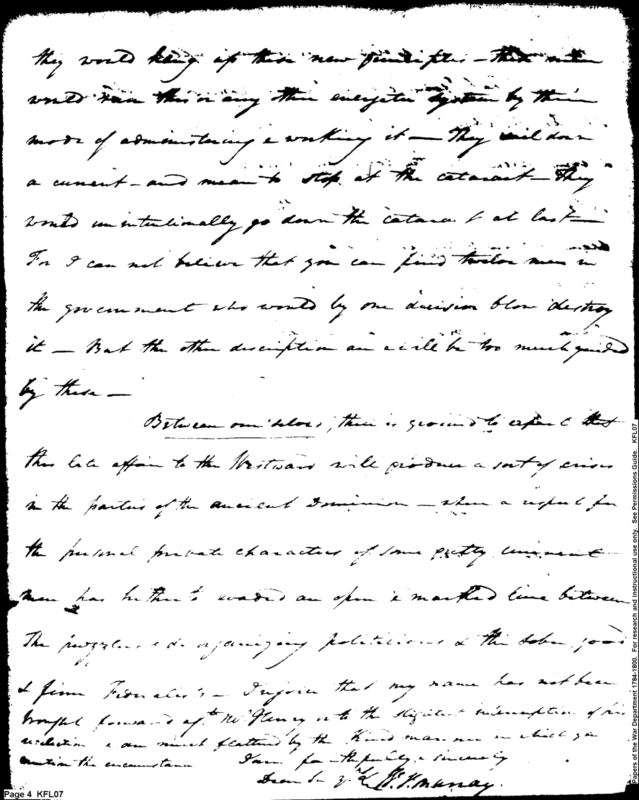 they would hang up these new principles — these men
would ruin this or any other energetic system by their
mode of administering & working it — They sail down
a current — and mean to stop at the cataract — They
would unintentionally go down the cataract at last —
For I can not believe that you can find twelve men in
the government who would by one decision blow destroy
it — But the other description are & will be too much guided
by these —
Between ourselves, there is ground to expect that
this late affair to the Westward will produce a sort of crisis
in the parties of the ancient Dominion — where a respect for
the personal private characters of some pretty eminent
men has hitherto evaded an open & marked line between
The & disorganizing politicians & the sober, good
& firm Federalists — I rejoice that my name has not been
brought forward agt. Mr. Henry or to the slightest interruption of his
& am much flattered by the kind manner in which you
mention the circumstance I am faithfully & sincerely
Dear Sir yrs W. V. Murray.
Page 4 KFL07
Papers of the War Department 1784-1800. For research and instructional use only. See Permissions Guide. KFL07